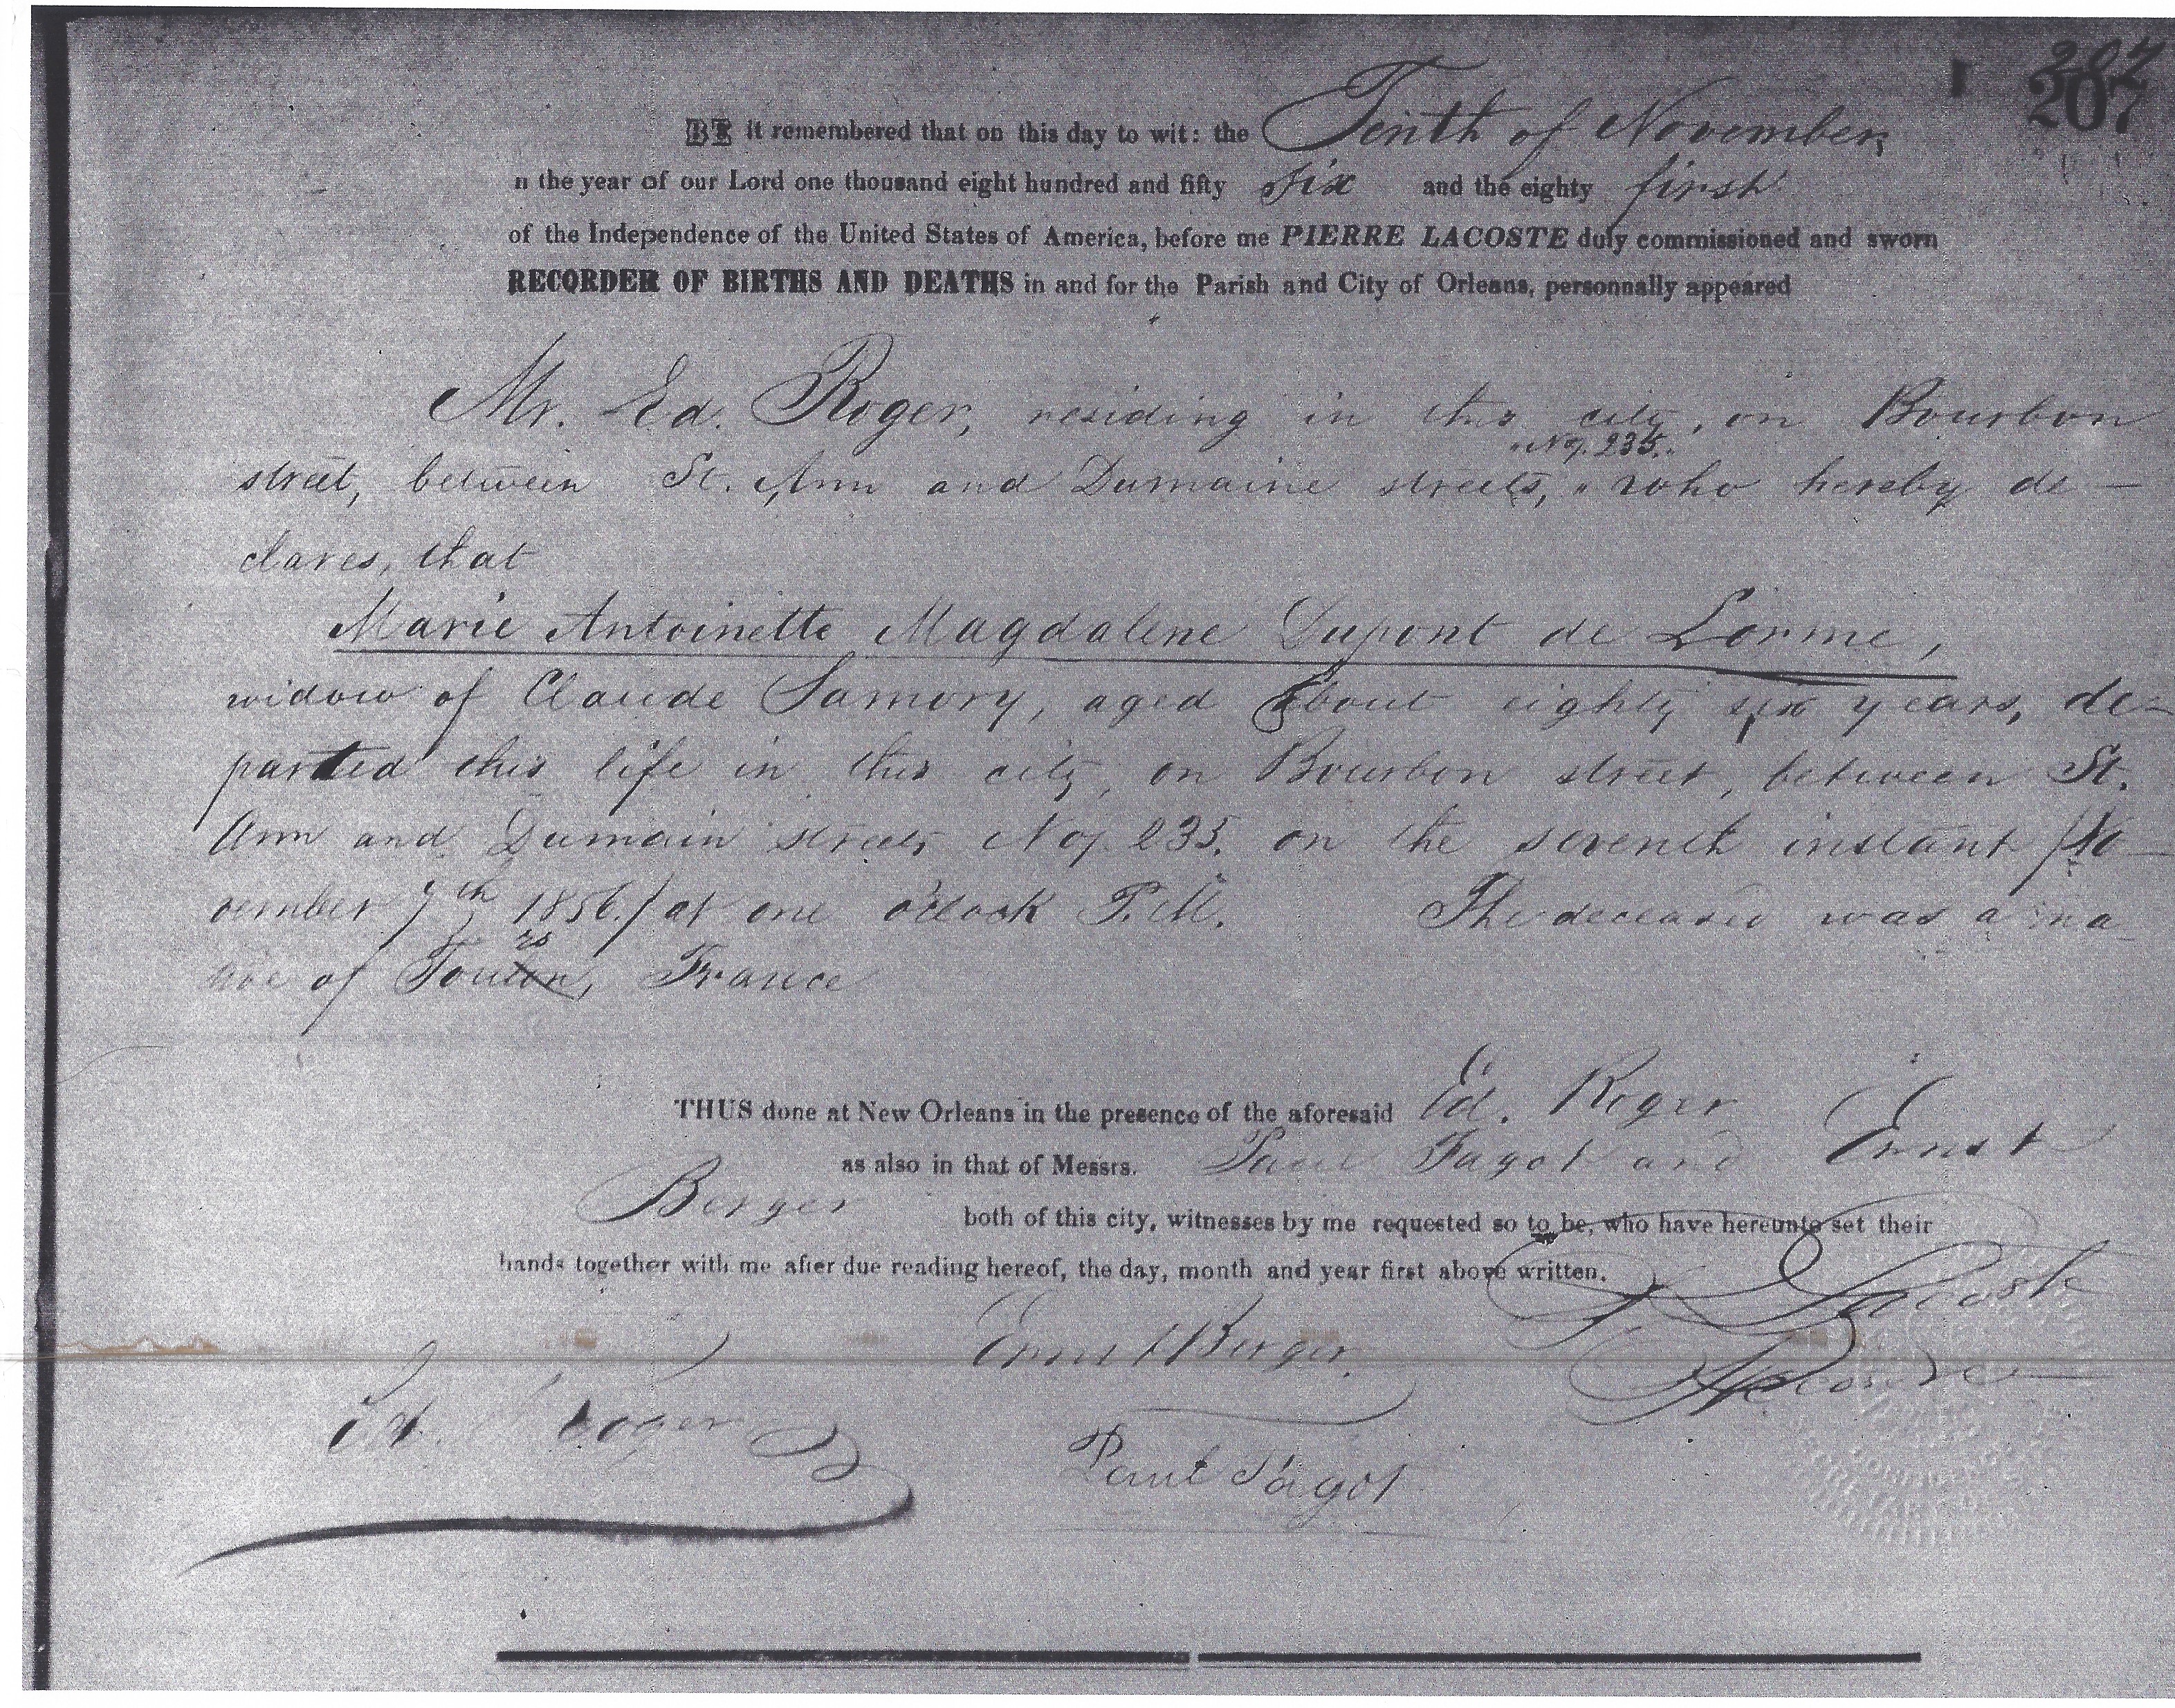 207
207
BE it remembered that on this day to wit: the Tenth of November,
n the year of our Lord one thousand eight hundred and fifty six and the eighty first
of the Independence of the United States of America, before me PIERRE LACOSTE duly commissioned and sworn
RECORDER OF BIRTHS AND DEATHS in and for the Parish and City of Orleans, personnally appeared
Mr. Ed. Roger, residing in this city, on Bourbon
"No. 235."
street, between St. Ann and Dumaine streets, " who hereby de-
clares, that
Marie Antoinette Magdalene Dupont de Lorme,
widow of Claude Samory, aged about eighty six years, de-
parted this life in this city, on Bourbon street, between St.
Ann and Dumain streets No. 235. on the seventh instant /No-
vember 7th 1856./ at one o'clock P.M. The deceased was a na-
rs
tive of Toulon, France
THUS done at New Orleans in the presence of the aforesaid Ed. Roger
as also in that of Messrs. Paul Fagot and Ernst
Berger both of this city, witnesses by me requested so to be, who have hereunto set their
hands together with me after due reading hereof, the day, month and year first above written.
P. Lacoste
Ernst Berger.
Recorder
Ed. Roger
Paul Fagot